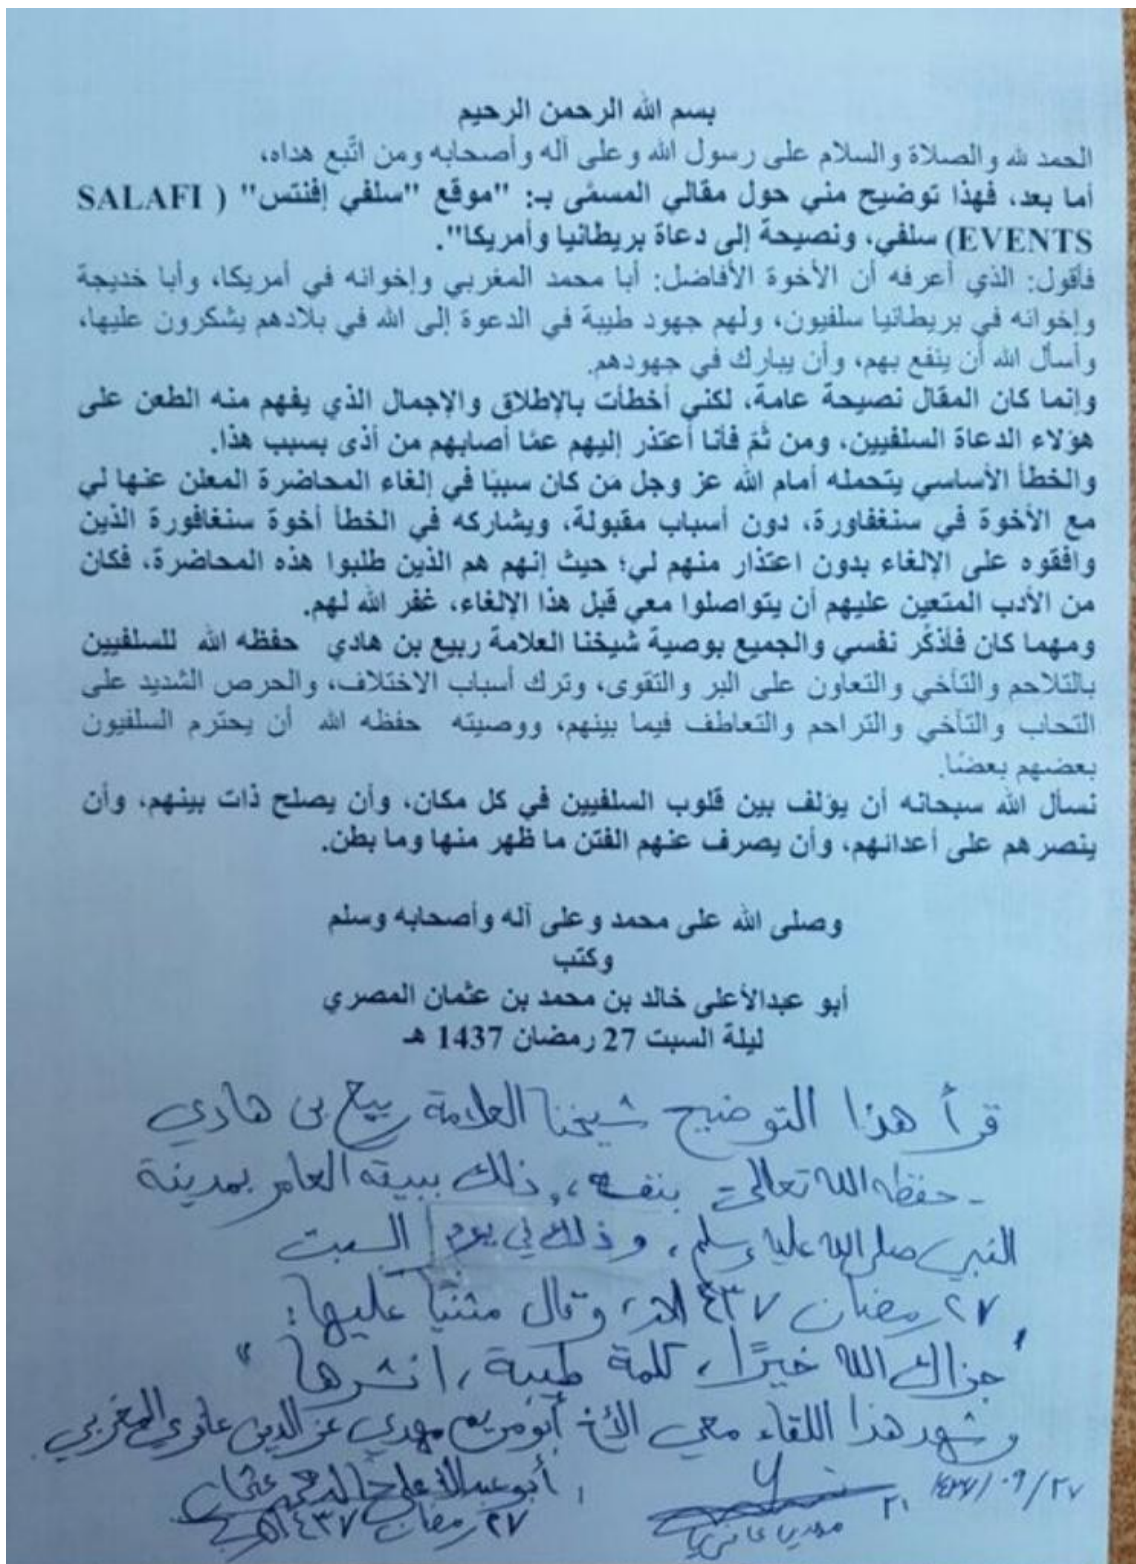 بسم الله الرحمن الرحيم
الحمد لله والصلاة والسلام على رسول الله وعلى آله وأصحابه ومن اتّبع هداه،
أما بعد، فهذا توضيح مني حول مقالي المسمَّى بـ: "موقع "سلفي إفنتس" ( SALAFI
EVENTS) سلفي، ونصيحة إلى دعاة بريطانيا وأمريكا".
فأقول: الذي أعرفه أن الأخوة الأفاضل: أبا محمد المغربي وإخوانه في أمريكا، وأبا خديجة
وإخوانه في بريطانيا سلفيون، ولهم جهود طيبة في الدعوة إلى الله في بلادهم يشكرون عليها،
وأسأل الله أن ينفع بهم، وأن يبارك في جهودهم.
وإنما كان المقال نصيحة عامة، لكني أخطأت بالإطلاق والإجمال الذي يفهم منه الطعن على
هؤلاء الدعاة السلفيين، ومن ثَمّ فأنا أعتذر إليهم عمَّا أصابهم من أذى بسبب هذا.
والخطأ الأساسي يتحمله أمام الله عز وجل مَن كان سببًا في إلغاء المحاضرة المعلن عنها لي
مع الأخوة في سنغفاورة، دون أسباب مقبولة، ويشاركه في الخطأ أخوة سنغافورة الذين
وافقوه على الإلغاء بدون اعتذار منهم لي؛ حيث إنهم هم الذين طلبوا هذه المحاضرة، فكان
من الأدب المتعين عليهم أن يتواصلوا معي قبل هذا الإلغاء، غفر الله لهم.
ومهما كان فأذكِّر نفسي والجميع بوصية شيخنا العلامة ربيع بن هادي حفظه الله للسلفيين
بالتلاحم والتآخي والتعاون على البر والتقوى، وترك أسباب الاختلاف، والحرص الشديد على
التحاب والتآخي والتراحم والتعاطف فيما بينهم، ووصيته حفظه الله أن يحترم السلفيون
بعضهم بعضًا.
نسأل الله سبحانه أن يؤلف بين قلوب السلفيين في كل مكان، وأن يصلح ذات بينهم، وأن
ينصرهم على أعدائهم، وأن يصرف عنهم الفتن ما ظهر منها وما بطن.
وصلى الله على محمد وعلى آله وأصحابه وسلم
وكتب
أبو عبدالأعلى خالد بن محمد بن عثمان المصري
ليلة السبت 27 رمضان 1437 هـ
قرأ هذا التوضيح شيخنا العلامة ربيع بن هادي
- حفظه الله تعالى - بنفسه، وذلك ببيته العامر بمدينة
النبي صلى الله عليه وسلم، وذلك في يوم السبت
٢٧ رمضان ١٤٣٧ هـ، وقال مثنيًا عليها:
"جزاك الله خيرًا، كلمة طيبة، انشرها"
وشهد هذا اللقاء معي الأخ أبو مريم مهدي عز الدين علوي المغربي
أبو عبد الأعلى خالد محمد عثمان
٢٧ رمضان ١٤٣٧ هـ